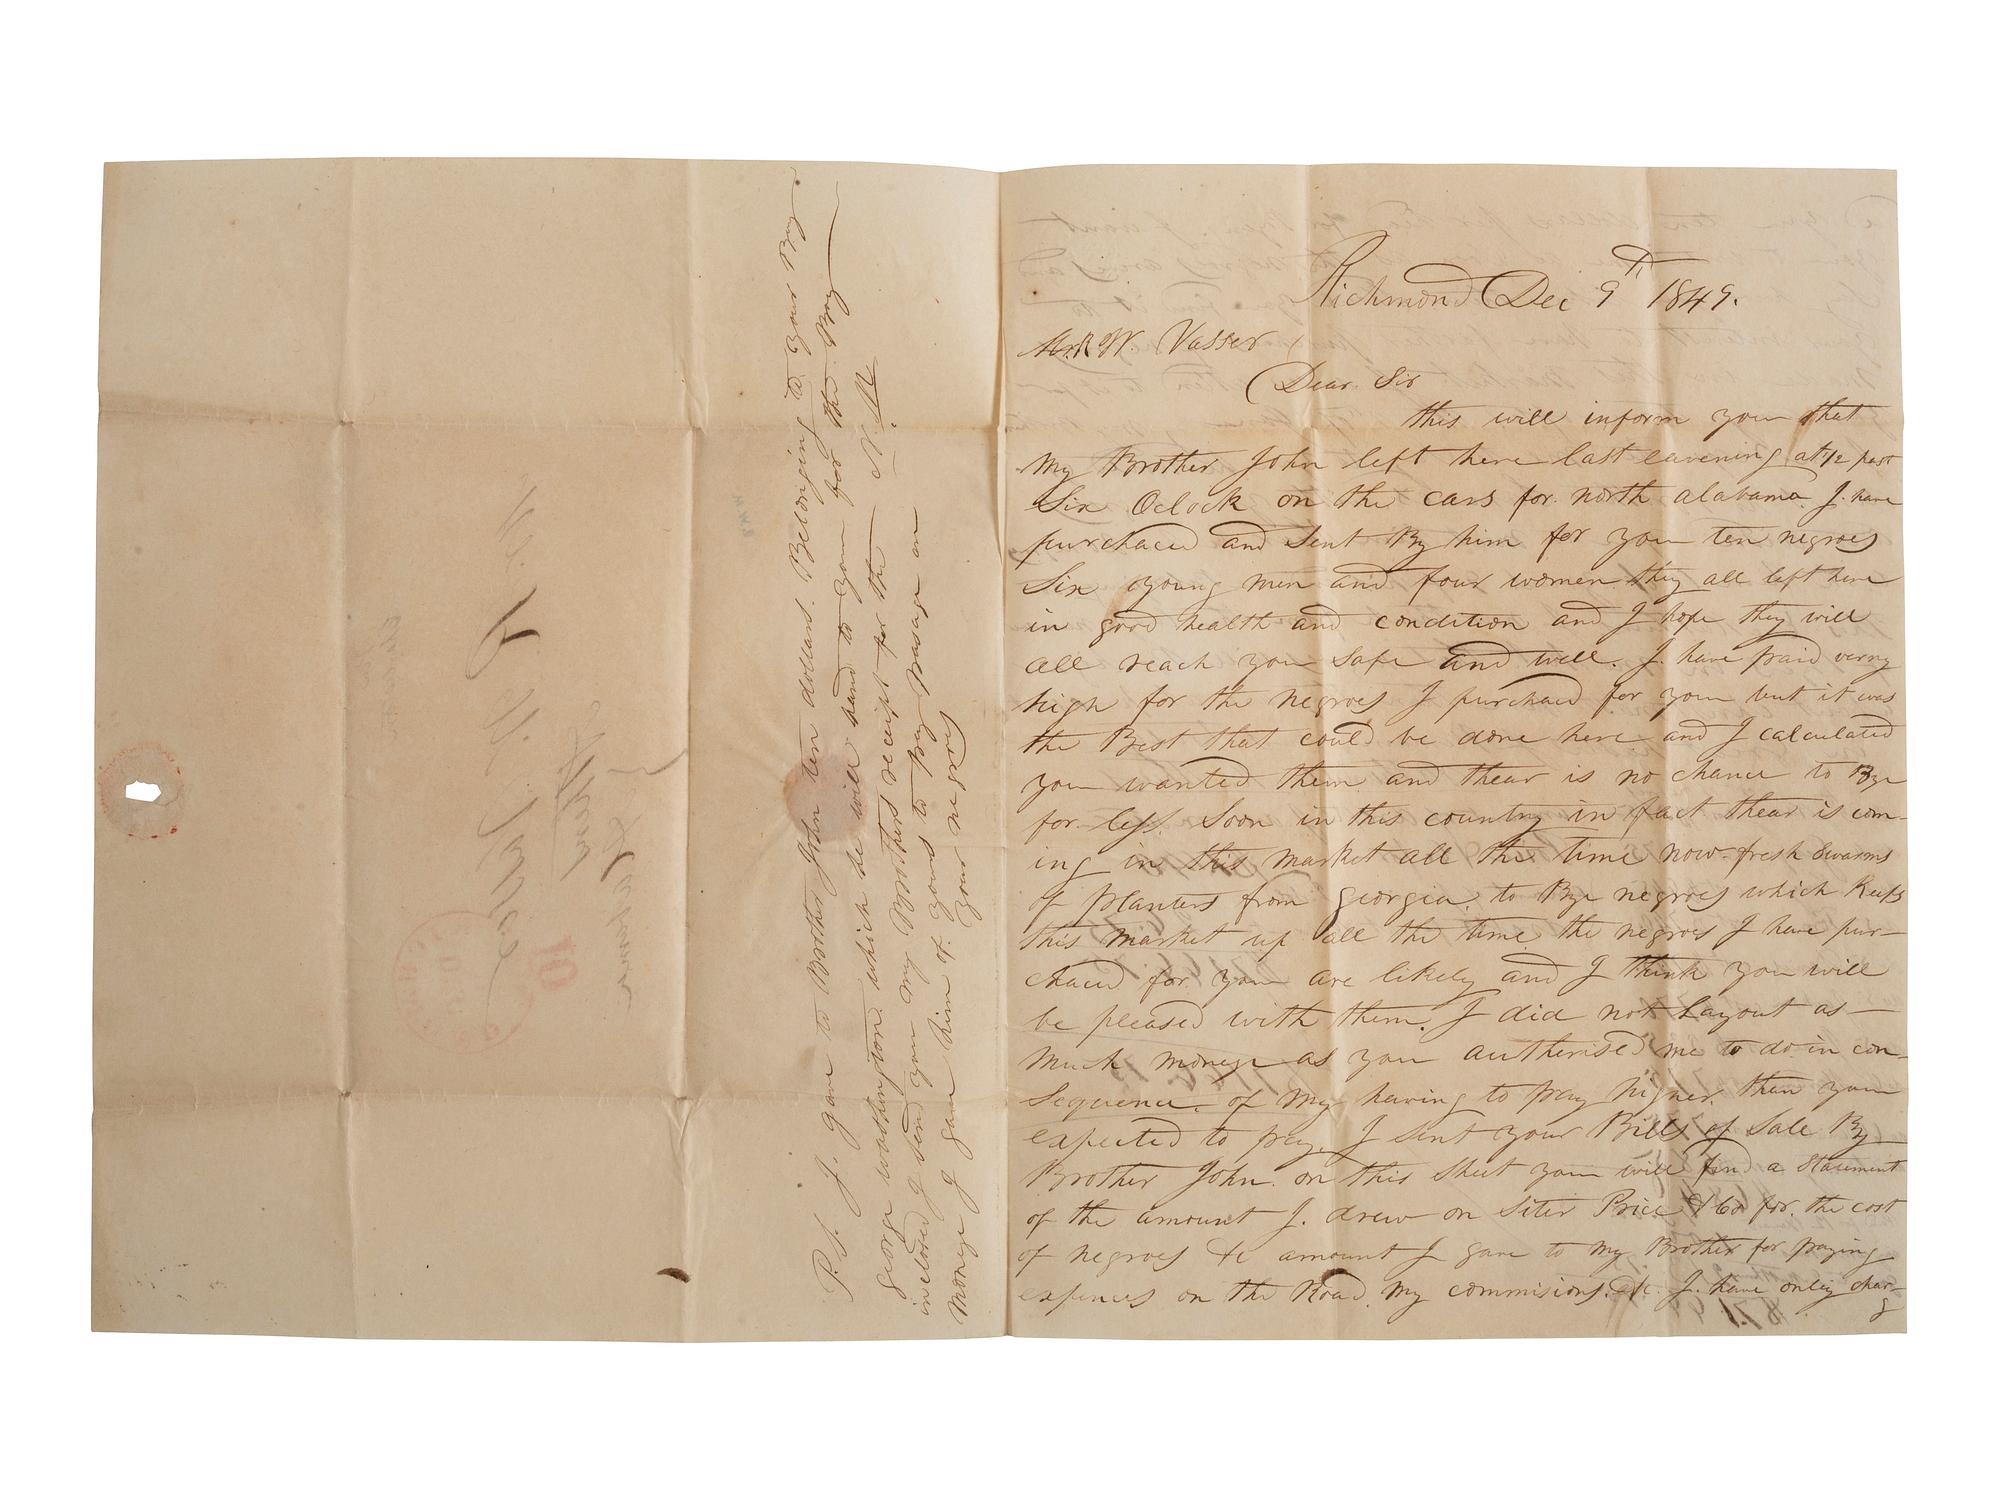 Richmond Dec 9th 1849.
Mr R W. Vasser
Dear Sir
this will inform you that
my Brother John left here last eavening at ½ past
Six Oclock on the cars for north alabama I have
purchaced and Sent By him for you ten negroes
Six young men and four women they all left here
in good health and condition and I hope they will
all reach you Safe and well. I have paid verry
high for the negroes I purchaced for you but it was
the Best that could be done here and I calculated
you wanted them and thear is no chance to Bye
for less Soon in this country in fact thear is com-
ing in this market all the time now fresh Swarms
of planters from georgia to Bye negroes which Keeps
this market up all the time the negroes I have pur-
chaced for you are likely and I think you will
be pleased with them. I did not Layout as
much moneye as you autherised me to do in con-
Sequence of my having to pay higher than you
expected to pay I Sent your Bills of Sale By
Brother John on this Sheet you will find a Statement
of the amount I drew on Siter Price & Co for the cost
of negroes &c amount I gave to my Brother for paying
expences on the Road my commisions &c I have onley char-
g
P.S. I gave to Brother John ten dollars Belonging to your Boy
george washington which he will hand to you for the Boy
inclosed I Send you my Brothers receipt for the N. M
moneye I gave him of yours to pay passage on
your negroes
10